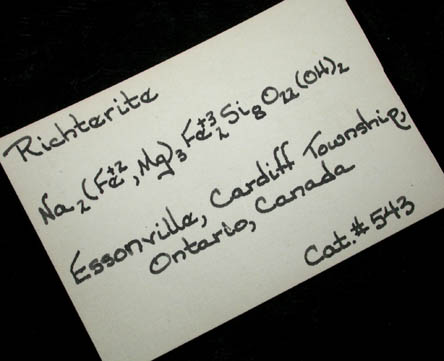 Richterite
Na₂(Fe⁺²,Mg)₃Fe⁺³₂Si₈O₂₂(OH)₂
Essonville, Cardiff Township,
Ontario, Canada
Cat.# 543